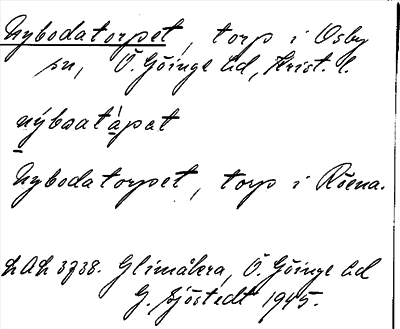 Nybodatorpet, torp i Osby
sn, Ö. Göinge hd, Krist. l.
nýbɷatàpat
Nybodatorpet, torp i Röena.
LAL 3738. Glimåkra, Ö. Göinge hd
G. Sjöstedt 1945.